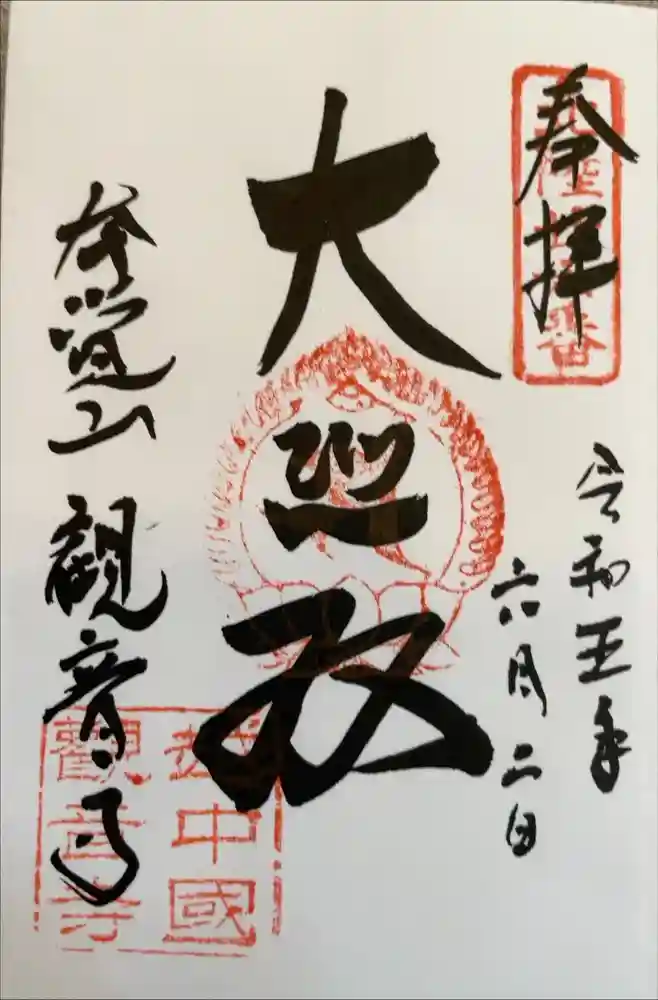 奉拝
令和五年
六月二日
大悲
覚山 観音寺
越中國
觀音寺